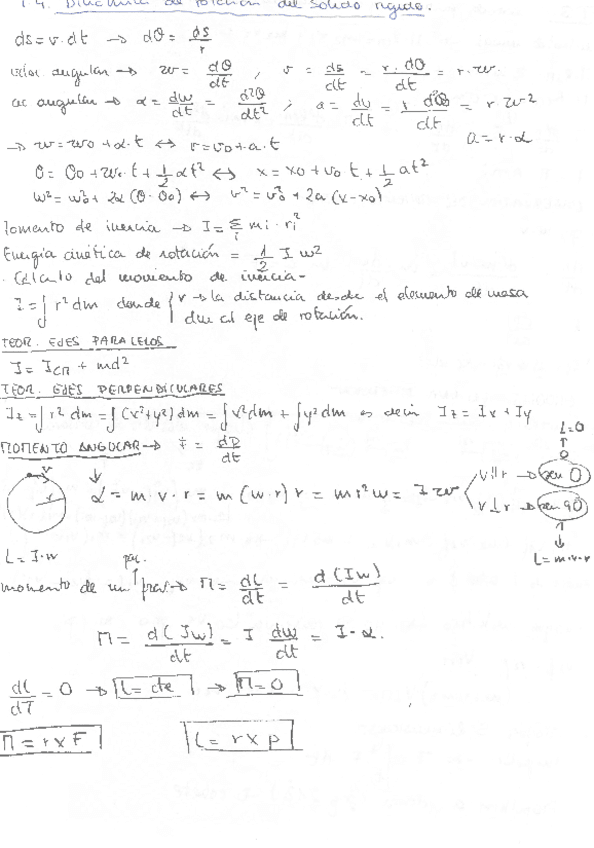 1.4. Dinámica de rotación del sólido rígido.
ds = v·dt → dθ = ds/r
veloc angular → w = dθ/dt , v = ds/dt = r·dθ/dt = r·w
ac angular → α = dw/dt = d²θ/dt² ; a = dv/dt = r d²θ/dt = r·w²
a = r·α
→ w = w0 + α·t ↔ v = v0 + a·t
θ = θ0 + w0·t + 1/2 αt² ↔ x = x0 + v0 t + 1/2 at²
w² = w0² + 2α(θ-θ0) ↔ v² = v0² + 2a(x-x0)
Momento de inercia → I = Σi mi·ri²
Energía cinética de rotación = 1/2 I w²
Cálculo del movimiento de inercia-
I = ∫r²dm donde { r → la distancia desde el elemento de masa
dm al eje de rotación.
TEOR. EJES PARALELOS
I = ICM + md²
TEOR. EJES PERPENDICULARES
Iz = ∫r² dm = ∫(x²+y²) dm = ∫x²dm + ∫y²dm es decir Iz = Ix + Iy
L=0
MOMENTO ANGULAR → F = dP/dt
v
r
L = m·v·r = m(w·r)r = mr²w = I w
v∥r → sen 0
v⊥r → sen 90
L = m·v·r
L = I·w
momento de un par. → M = dL/dt = d(Iw)/dt
M = d(Iw)/dt = I dw/dt = I·α.
dL/dT = 0 → L = cte → M = 0
M = r x F
L = r x p